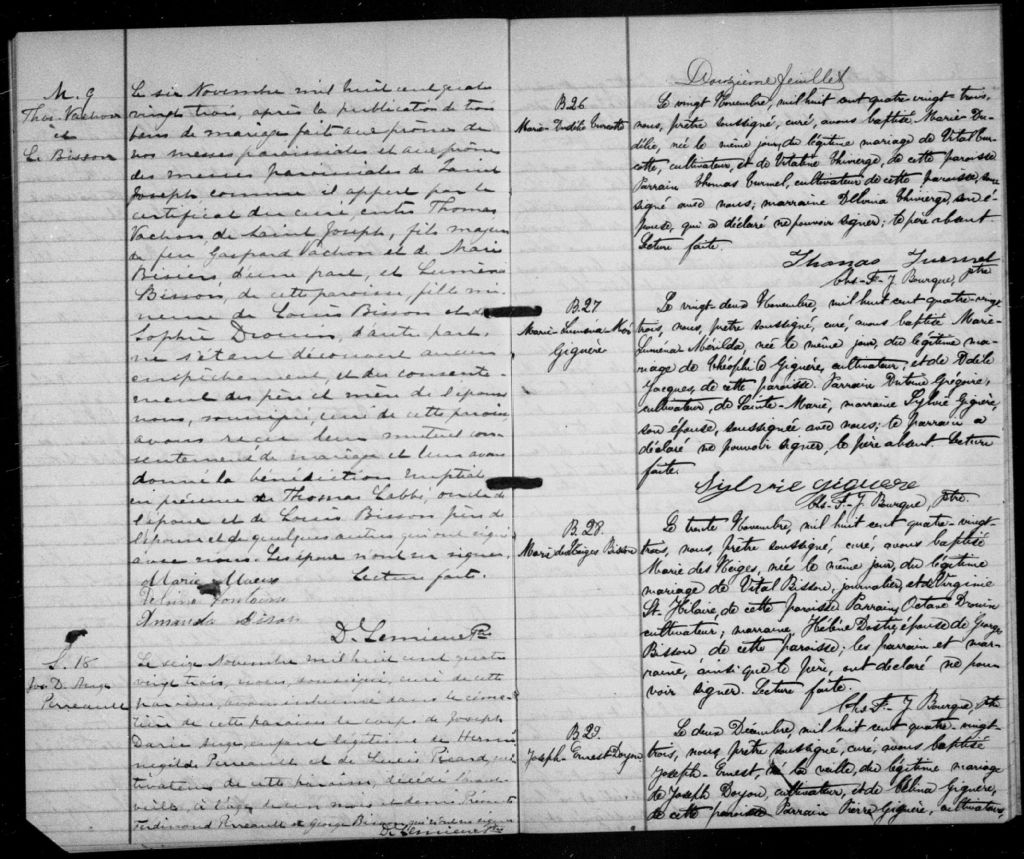 M. 9
Thos. Vachon
et
L. Bisson
Le six Novembre mil huit cent quatre
vingt trois, après la publication de trois
bans de mariage fait aux prônes de
nos messes paroissiales et aux prônes
des messes paroissiales de Saint
Joseph comme il appert par le
certificat du curé, entre Thomas
Vachon, de Saint Joseph, fils majeur
de feu Gaspard Vachon et de Marie
d'une part, et Luména
Bisson, de cette paroisse, fille mi-
neure de Louis Bisson et de
Sophie Drouin, d'autre part,
ne s'étant découvert aucun
empêchement, et du consente-
ment des père et mère de l'épouse
nous, soussigné, curé de cette paroisse
avons reçu leur mutuel con-
sentement de mariage et leur avons
donné la bénédiction nuptiale
en présence de Thomas Labbé, oncle de
l'époux et de Louis Bisson père de
l'épouse et de quelques autres qui ont signé
avec nous. Les époux n'ont su signer.
Lecture faite.
Marie
Fontaine
Amanda Bison
D. Lemieux Ptre
S. 18
Jos. D. Ange
Perreault
Le seize Novembre mil huit cent quatre
vingt trois, nous, soussigné, curé de cette
paroisse, avons inhumé dans le cime-
tière de cette paroisse le corps de Joseph
Darie Ange, enfant légitime de Hermé-
negilde Perreault et de Lucie Picard, cul-
tivateurs de cette paroisse, décédé l'avant
veille, à l'âge de un mois et demi. Présents
Ferdinand Perreault et George Bisson qui n'ont su signer
D. Lemieux Ptre
Douzième feuillet
B 26
Marie-Odélie Turcotte
Le vingt Novembre, mil huit cent quatre-vingt trois,
nous, prêtre soussigné, curé, avons baptisé Marie-O-
délie, née le même jour, du légitime mariage de Vital Tur-
cotte, cultivateur, et de Vitaline Thivierge, de cette paroisse
Parrain Thomas Turmel, cultivateur de cette paroisse, sous-
signé avec nous; marraine Delvina Thivierge, son é-
pouse, qui a déclaré ne pouvoir signer; le père absent
Lecture faite.
Thomas Turmel
Chs-F-J Bourque, ptre
B. 27
Marie-Luména-Mé
Giguère
Le vingt-deux Novembre, mil huit cent quatre-vingt
trois, nous, prêtre soussigné, curé, avons baptisé Marie-
Luména-Mérilda, née le même jour, du légitime ma-
riage de Théophile Giguère, cultivateur, et de Odile
Jacques, de cette paroisse. Parrain Grégoire,
cultivateur, de Sainte-Marie, marraine Sylvie Giguère,
son épouse, soussignée avec nous; le parrain a
déclaré ne pouvoir signer, le père absent Lecture
faite.
Sylvie Giguère
Chs-F-J Bourque, ptre.
B. 28.
Marie des Neiges Bisson
Le trente Novembre, mil huit cent quatre-vingt-
trois, nous, prêtre soussigné, curé, avons baptisé
Marie des Neiges, née le même jour, du légitime
mariage de Vital Bisson, journalier, et de Virginie
St-Hilaire, de cette paroisse Parrain, Octave Drouin
cultivateur; marraine, Hélène Dostie, épouse de George
Bisson de cette paroisse; les parrain et mar-
raine, ainsi que le père, ont déclaré ne pou-
voir signer. Lecture faite.
Chs-F-J Bourque, ptr
B 29.
Joseph-Ernest Doyon
Le deux Décembre, mil huit cent quatre-vingt-
trois, nous, prêtre soussigné, curé, avons baptisé
Joseph-Ernest, né la veille, du légitime mariage
de Joseph Doyon, cultivateur, et de Célina Giguère,
de cette paroisse Parrain Pierre Giguère, cultivateur,